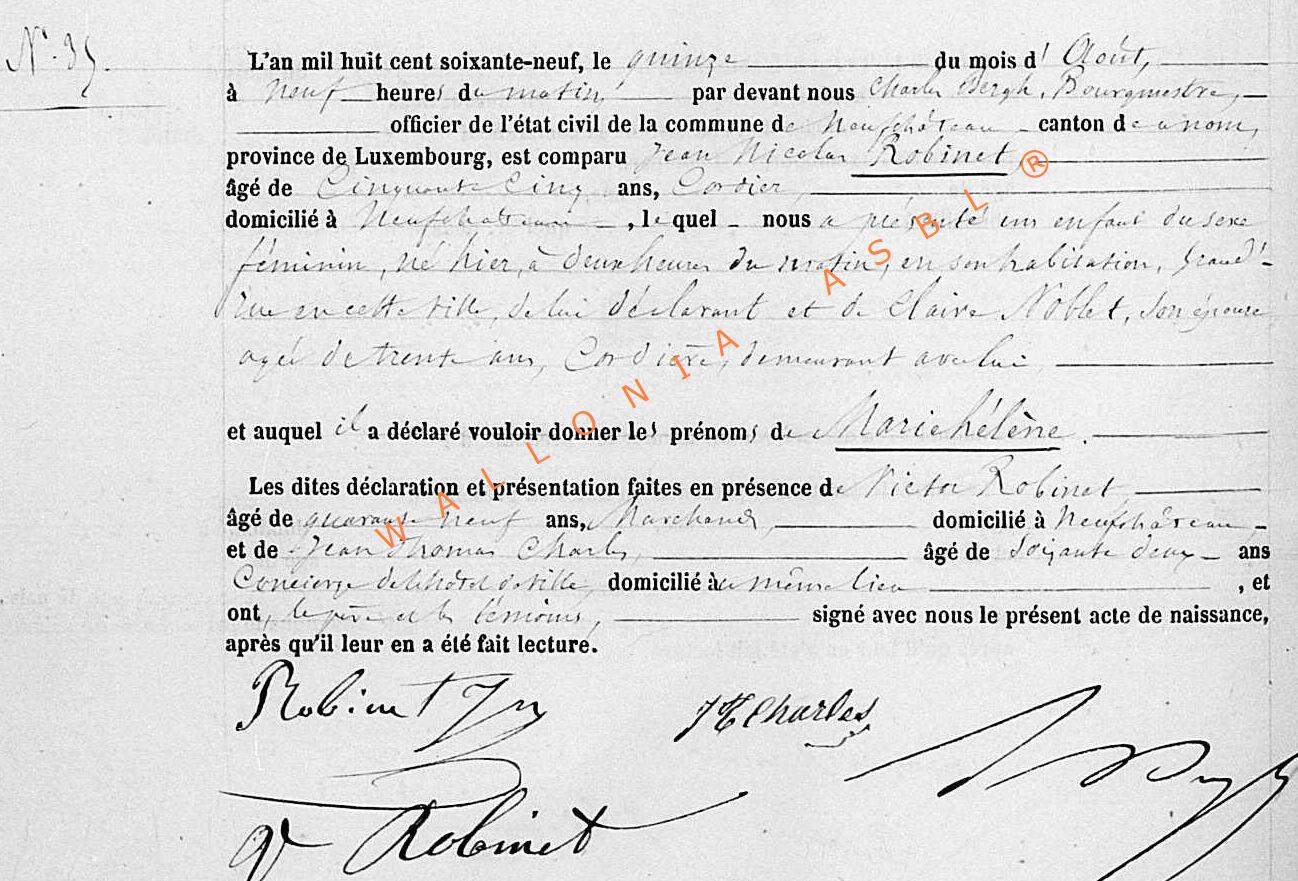 N° 35.
L'an mil huit cent soixante-neuf, le quinze du mois d' Août,
à neuf heures du matin par devant nous Charles Bergh, Bourgmestre,
officier de l'état civil de la commune de Neufchâteau canton de ce nom,
province de Luxembourg, est comparu Jean Nicolas Robinet,
âgé de Cinquante Cinq ans, Cordier,
domicilié à Neufchâteau, lequel nous a présenté un enfant du sexe
féminin, né hier, à deux heures du matin, en son habitation, Grand'-
rue en cette ville, de lui déclarant et de Claire Noblet, son épouse
agée de trente ans, Cordière, demeurant avec lui,
et auquel il a déclaré vouloir donner les prénoms de Marie hélène.
Les dites déclaration et présentation faites en présence de Victor Robinet,
âgé de quarante neuf ans, Marchand, domicilié à Neufchâteau,
et de Jean Thomas Charles, âgé de soixante deux ans
Concierge de l'hôtel de ville, domicilié au même lieu, et
ont, le père et les témoins, signé avec nous le présent acte de naissance,
après qu'il leur en a été fait lecture.
Robinet JTCharles
Robinet
WALLONIA ASBL ®